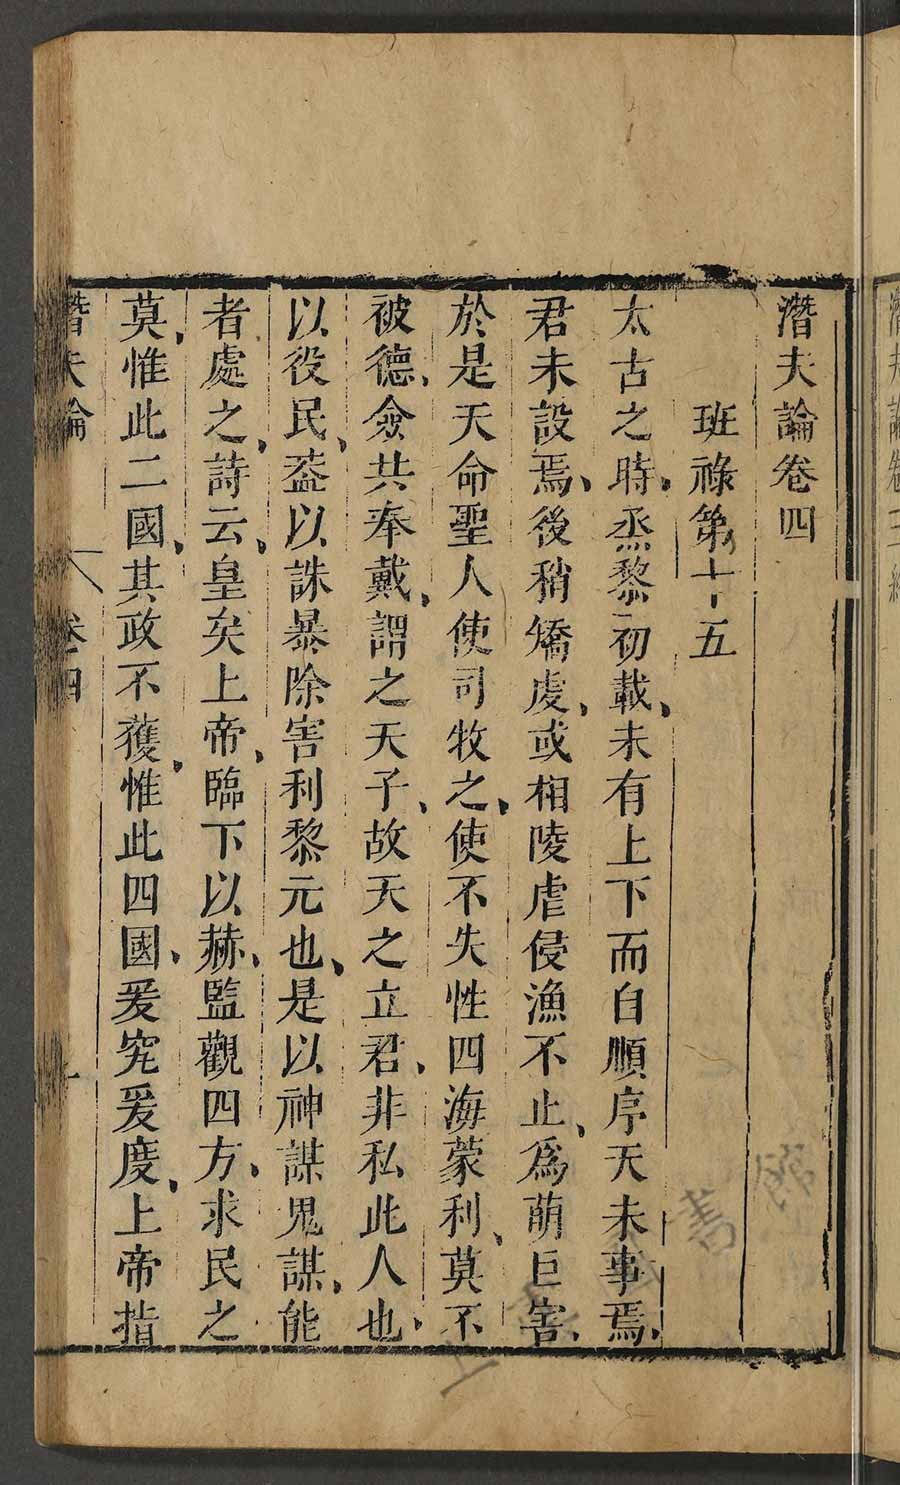 潛夫論卷四
班祿第十五
太古之時、烝黎初載、未有上下而自順序天未事焉、
君未設焉、後稍矯虔、或相陵虐侵漁不止、爲萌巨害、
於是天命聖人使司牧之、使不失性四海蒙利、莫不
被德、僉共奉戴、謂之天子、故天之立君、非私此人也、
以役民、葢以誅暴除害利黎元也、是以神謀鬼謀、能
者處之、詩云、皇矣上帝、臨下以赫、監觀四方、求民之
莫、惟此二國、其政不獲、惟此四國、爰究爰度、上帝指
潛夫論 卷四 一